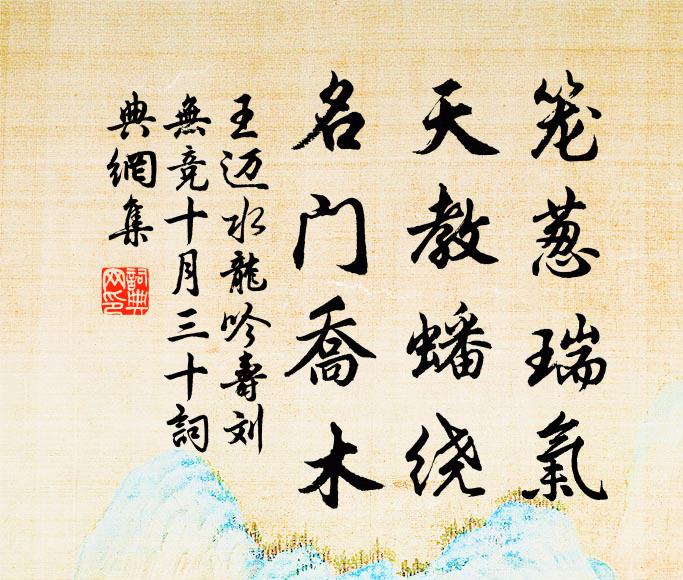 笼葱瑞氣
天教蟠绕
名门喬木
王迈水龍吟壽刘
無竞十月三十詞
典網集
詞典
网印